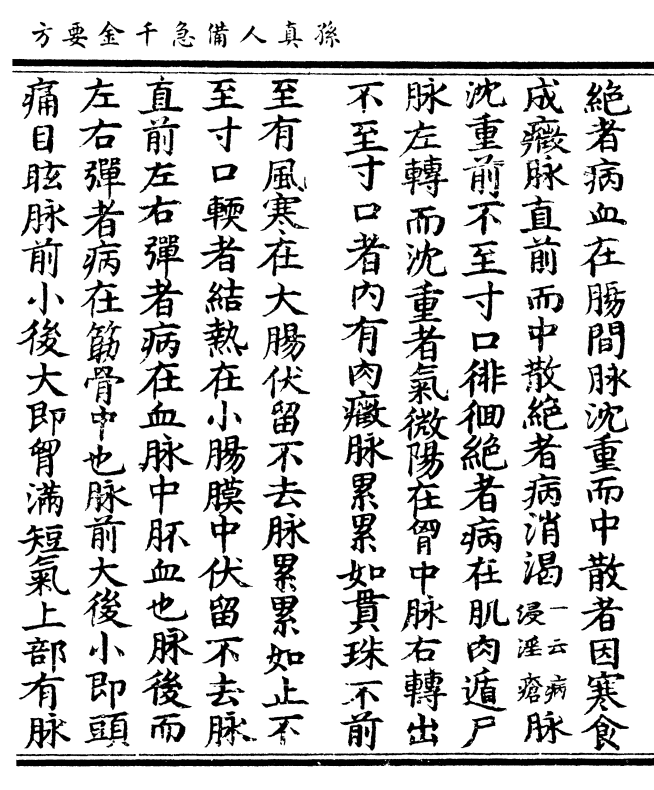 孫真人備急千金要方
絕者病血在腸間脉沈重而中散者因寒食
成癥脉直前而中散絕者病消渴一云病浸淫瘡脉
沈重前不至寸口徘徊絕者病在肌肉遁尸
脉左轉而沈重者氣微陽在胷中脉右轉出
不至寸口者內有肉癥脉累累如貫珠不前
至有風寒在大腸伏留不去脉累累如止不
至寸口輭者結熱在小腸膜中伏留不去脉
直前左右彈者病在血脉中胚血也脉後而
左右彈者病在筋骨中也脉前大後小即頭
痛目眩脉前小後大即胷滿短氣上部有脉